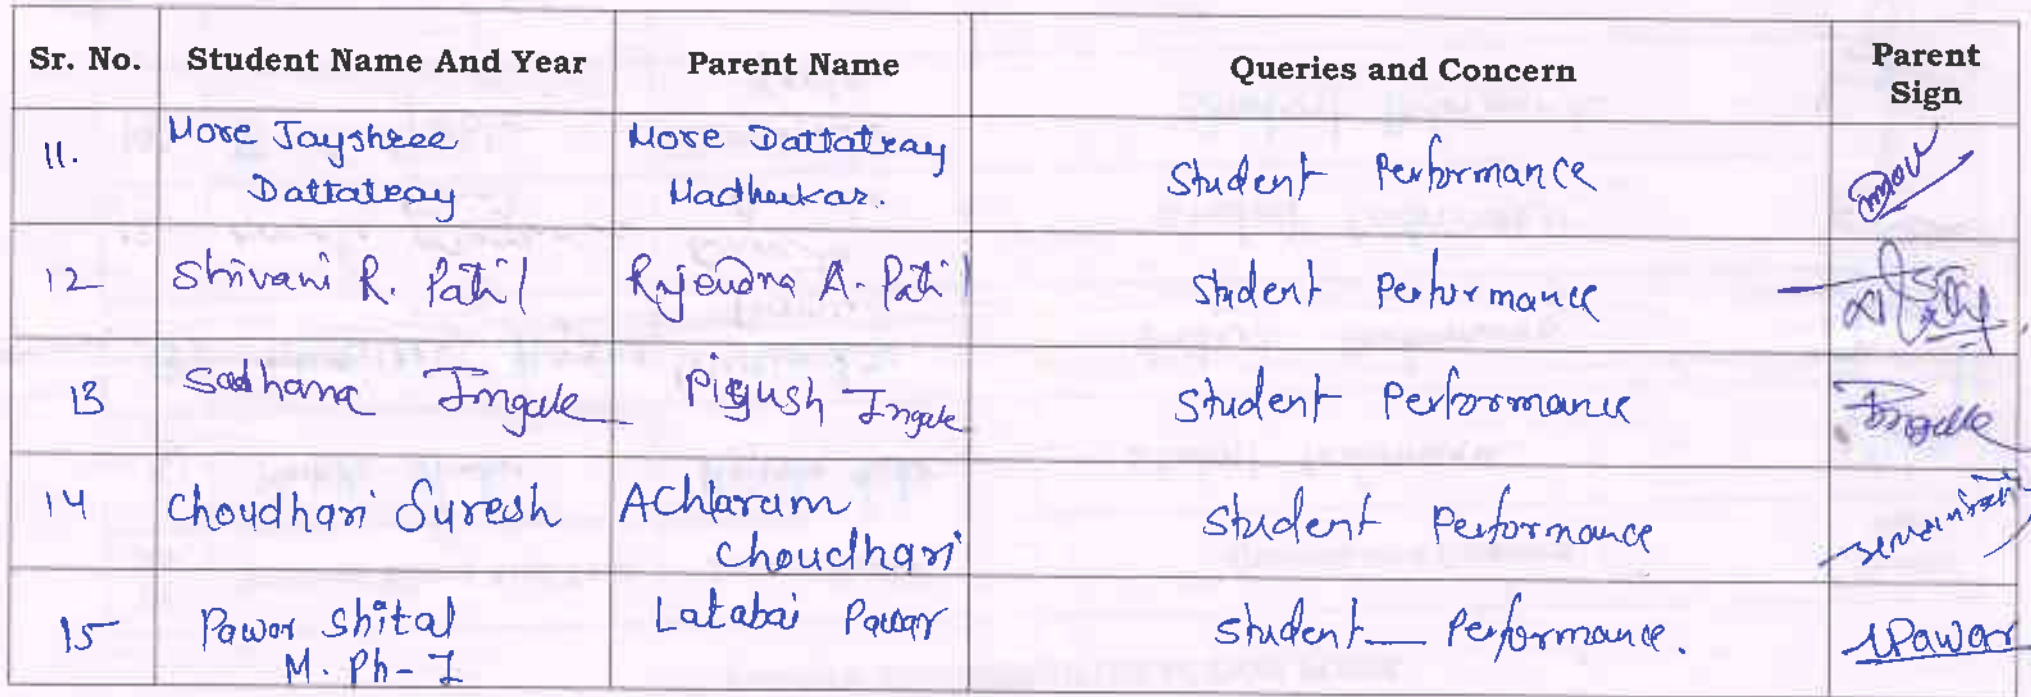 Sr. No. Student Name And Year Parent Name Queries and Concern Parent Sign
11. More Jayshree Dattatray More Dattatray Madhukar. Student Performance
12 Shrivani R. Patil Rajendra A. Patil Student Performance
13 Sadhana Ingale Piyush Ingale Student Performance Ingale
14 Choudhari Suresh Achlaram Choudhari Student Performance
15 Pawar Shital M. Ph-I Latabai Pawar Student Performance. Pawar